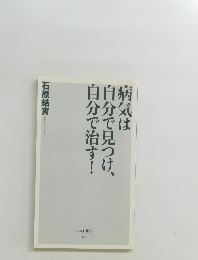 病気は
自分で見つけ、
自分で治す!
石原結實